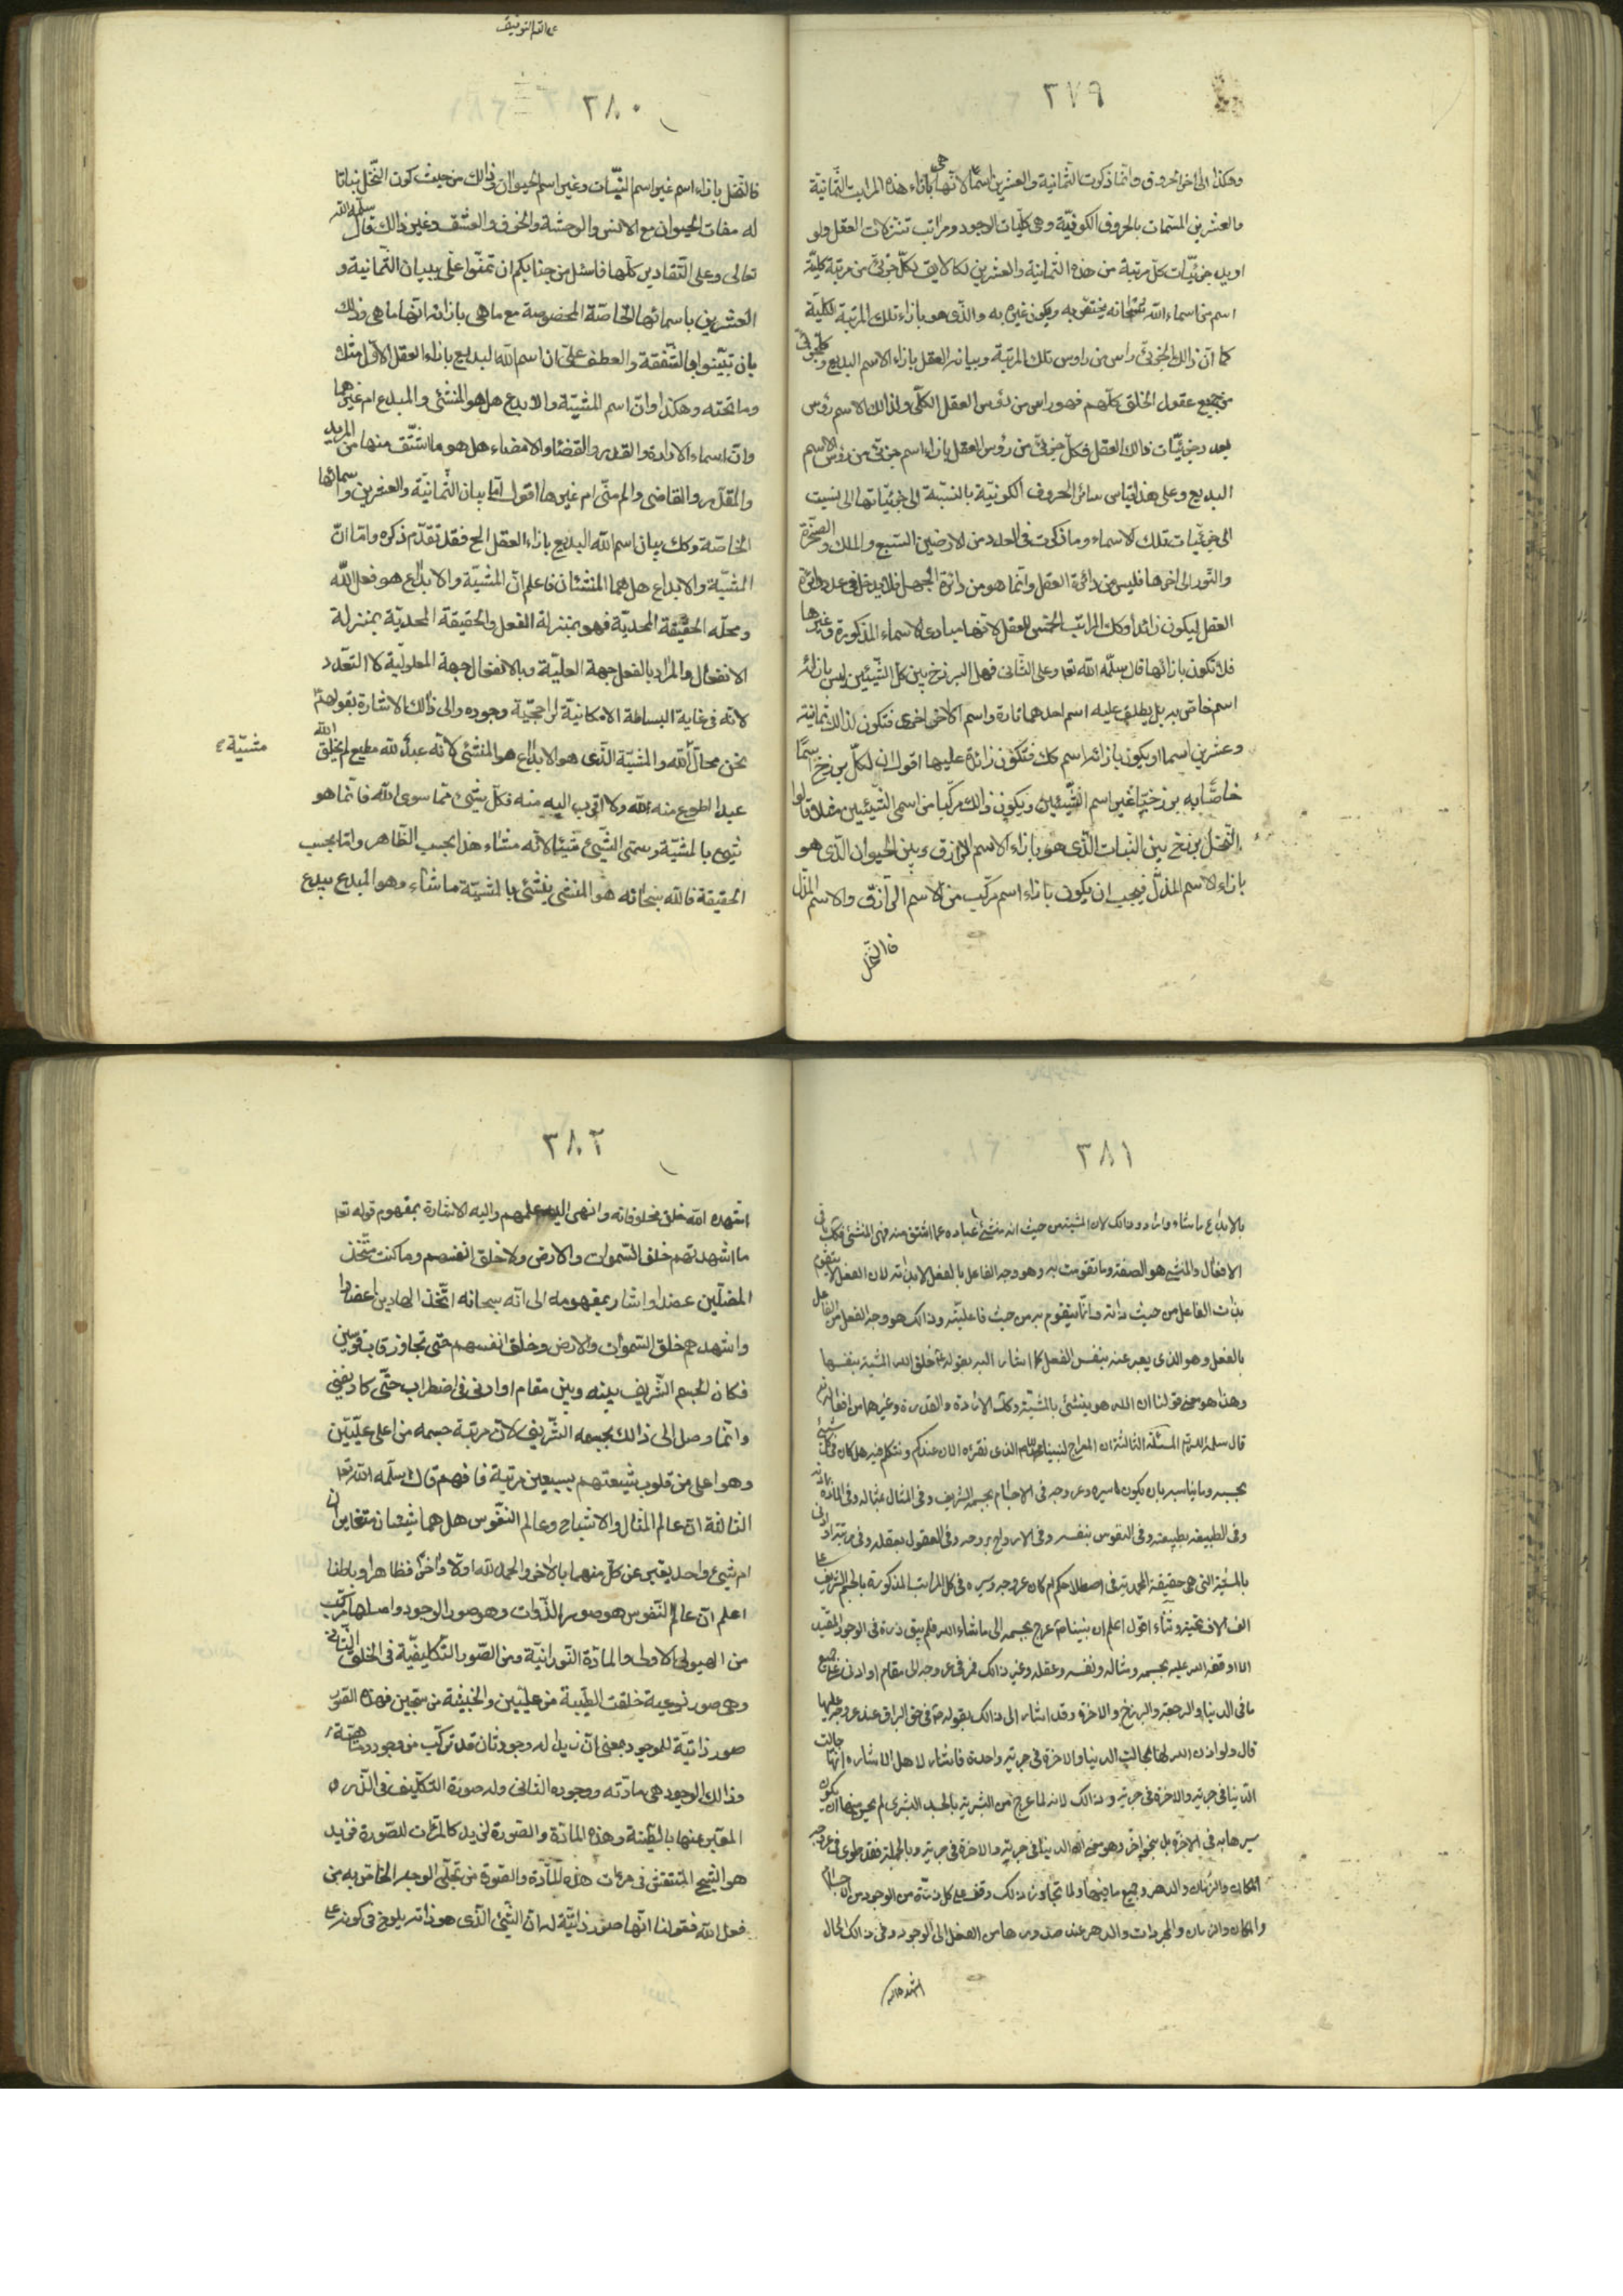 ٣٧٩
وهكذا الى اخر الحروف وانما ذكرت الثمانية والعشرين اسما لانها هي بازاء هذه المراتب الثمانية
والعشرين المسمات بالحروف الكونيّة وهي كليّات الوجود ومراتب تنزلات العقل ولو
اريد جزئيّات كلّ مرتبة من هذه الثمانية والعشرين لكان لايق لكلّ جزئىّ من مرتبة كليّة
اسم من اسماء الله سبحانه يختصّ به ويكون غيره به والذى هو بازاء تلك المرتبة الكليّة
كما انّ ذالك الجزئىّ راس من راوس تلك المرتبة وبيانه العقل بازاء الاسم البديع وكلّ جزئىّ
من جميع عقول الخلق كلّهم فهو راس من رؤس العقل الكلّى ولذالك الاسم رؤس
بعدد جزئيّات ذالك العقل فكلّ جزئىّ من رؤس العقل بازاء اسم جزئىّ من رؤس الاسم
البديع وعلى هذا قياس سائر الحروف الكونيّة بالنسبة الى جزئيّاتها الى نسبت
الى جزئيّات تلك الاسماء وما ذكرت فى العدد من الارضين السبع والملك والصخرة
والثور الى اخرها فليس من دائرة العقل وانما هو من دائرة الجهل فلا يدخل فى عدد دائرة
العقل ليكون زائدا وكك المراتب الخمس للعقل لانها مبادى الاسماء المذكورة وغيرها
فلا تكون بازائها قال سلّمه الله تعا وعلى الثانى فهل البرزخ بين كلّ الشيئين ليس بازائه
اسم خاصّ به بل يطلق عليه اسم احدهما تارة واسم الاخر اخرى فتكون لذالك ثمانية
وعشرين اسما او يكون بازائه اسم كك فتكون زائدة عليها اقول ان لكلّ برزخ اسمًا
خاصّا به برزخيّا غير اسم الشّيئين ويكون ذالك مركّبا من اسمى الشيئين مثلا قالوا
النّخل برزخ بين النبات الّذى هو بازاء الاسم الرازق وبين الحيوان الّذى هو
بازاء الاسم المذلّ فيجب ان يكون بازاء اسم مركّب من الاسم الرّازق والاسم المذلّ
فالنّخل
٣٨٠
فالنّخل بازاء اسم غير اسم النّبات وغير اسم الحيوان وذالك من حيث كون النّخل نباتا
له صفات الحيوان مع الانس والوحشة والخوف والعشق وغير ذالك قال سلّمه الله
تعالى وعلى التّقادير كلّها فاسئل من جنابكم ان تمنّوا علىّ ببيان الثّمانية و
العشرين باسمائها الخاصّة المخصوصة مع ما هى بازائه انها ما هى وذلك
بان تبيّنوا بالشّفقة والعطف علىّ ان اسم الله البديع بازاء العقل الاوّل مثلك
وما تحته وهكذا وانّ اسم المشيّة والابدع هل هو المنشئ والمبدع ام غيرهما
وانّ اسماء الارادة والقدر والقضاء والامضاء هل هو ما اشتّق منها من المريد
والمقدّر والقاضى والممضى ام غيرها اقول امّا بيان الثّمانية والعشرين واسمائها
الخاصّة وكك بيان اسم الله البديع بازاء العقل الخ فقد تقدّم ذكره وامّا انّ
المشيّة والابداع هل هما المنشئان فاعلم انّ المشيّة والابداع هو فعل الله
ومحلّه الحقيقة المحديّة فهو بمنزلة الفعل والحقيقة المحديّة بمنزلة
الانفعال والمراد بالفعل جهة العليّة وبالانفعال جهة المعلوليّة لا التعّدد
لانّه فى غاية البساطة الامكانيّة لراجحيّة وجوده والى ذالك الاشارة بقولهم
نحن محالّ مشيّة الله والمشيّة الّذى هو الابداع هو المنشئ لانّه عبدٌ لله مطيع لم يخلق الله
عبدا اطوع منه لله ولا اقرب اليه منه فكلّ شئ مما سوى الله فانّما هو
شئ بالمشيّة وسمّى الشّيئ شيئا لانّه مشاء هذا بحسب الظّاهر وامّا بحسب
الحقيقة فالله سبحانه هو المنشى ينشئ بالمشيّة ما شاء وهو المبدع يبدع
٣٨١
بالابداع ما شاء
الافعال والمنشئ هو الصفة وما تقومت به وهو وجه الفاعل بالفعل لا بذاته لان الفعل لا يتقوم
بذات الفاعل من حيث ذاته وانما يتقوم به من حيث فاعليّته وذالك هو وجه الفعل من الفاعل
بالفعل وهو الذى يعبر عنه بنفس الفعل كما اشار اليه بقوله خلق الله المشية بنفسها
وهذا هو معنى قولنا ان الله هو ينشئ بالمشيّة وكك الارادة والقدرة وغيرهما من افعاله
قال سلمه الله تع المسئلة الثالثة ان المعراج لنبينا الذى نقرئه الان عندكم ونتكلم فيه هل كان فى كلّ شئ
بحسبه وما يناسبه بان يكون سيره وعروجه فى الاجسام بجسمه الشريف وفى المثال بمثاله وفى المادّة بمادّته
وفى الطبيعة بطبيعته وفى النفوس بنفسه وفى الارواح بروحه وفى العقول بعقله وفى مرتبة او ادنى
بالمشيّة التى هى حقيقة المحمديّة فى اصطلاحكم ام كان عروجه وسيره فى كل المراتب المذكورة بالجسم الشريف
اقول اعلم ان نبينا عرج بجسمه الى ما شاء الله فلم يبق ذرة فى الوجود المقيد
الا اوقفه الله عليه بجسمه ومثاله ونفسه وعقله وغير ذالك فمر فى عروجه الى مقام او ادنى على جميع
ما فى الدنيا والرجعة والبرزخ والاخرة وقد اشار الى ذالك بقوله فى حق البراق عند عروجه عليها
قال ولو اذن الله لها لجالت الدنيا والاخرة فى جرية واحدة فاشار لاهل الاشارة انها جالت
الدّنيا فى جرية والاخرة فى جرية وذالك لانه لما عرج
سيرها به فى الاخرة بل
المكان والزمان والدهر وجميع ما فيهما ولما تجاوز ذلك وقف على كل ذرّة من الوجود من الاجسام
والمكان والزمان والمجردات والدهر عند صدورها من الفعل الى الوجود وفى ذالك الحال
اشهده الله
٣٨٢
اشهده الله خلق مخلوقاته وانهى اليه علمهم واليه الاشارة بمفهوم قوله تعا
ما اشهدتهم خلق السّموات والارض ولا خلق انفسهم وما كنت متّخذ
المضلّين عضدا واشار بمفهومه الى انّه سبحانه اتّخذ الهادين اعضادا
واشهدهم خلق السّموات والارض وخلق انفسهم حتى تجاوز قاب قوسين
فكان الجسم الشّريف بينه وبين مقام او ادنى فى اضطراب حتّى كاد يفنى
وانّما وصل الى ذالك بجسمه الشّريف لانّ مرتبة جسمه من اعلى علّيّين
وهو اعلى من قلوب شيعتهم بسبعين مرتبة فافهم قال سلّمه الله تعا
الثالثة انّ عالم المثال والاشباح وعالم النّفوس هل هما شيئان متغايران
ام شيئ واحد يعبّر عن كلّ منهما بالاخر والحمد لله اوّلا واخرًا وظاهرا وباطنا
اعلم انّ عالم النّفوس هو صور الذّوات وهو صور الوجود واصلها مركّب
من الهيولى الاولى والمادّة النّورانيّة ومن الصّور التّكليفيّة فى الخلق الثّانى
وهى صور نوعية خلقت الطّيبة من علّيّين والخبيثة من سجّين فهذه الصّور
صور ذاتيّة للموجود بمعنى انّ زيدا له وجود ثان قد تركّب من وجود وماهيّة
وذالك الوجود هى مادّته ووجوده الثانى وله صورة التّكليف فى الذّر
المعبّر عنها بالطّينة وهذه المادّة والصّورة لزيد كالمرات للصّورة فزيد
هو الشّبح المنتقش فى مرءات هذه المادّة والصّورة من تجلّى الوجه الخاصّ به من
فعل الله فقولنا انّها صور ذاتيّة له انّ الشّئ الّذى هو ذاته يلوح فى كونه